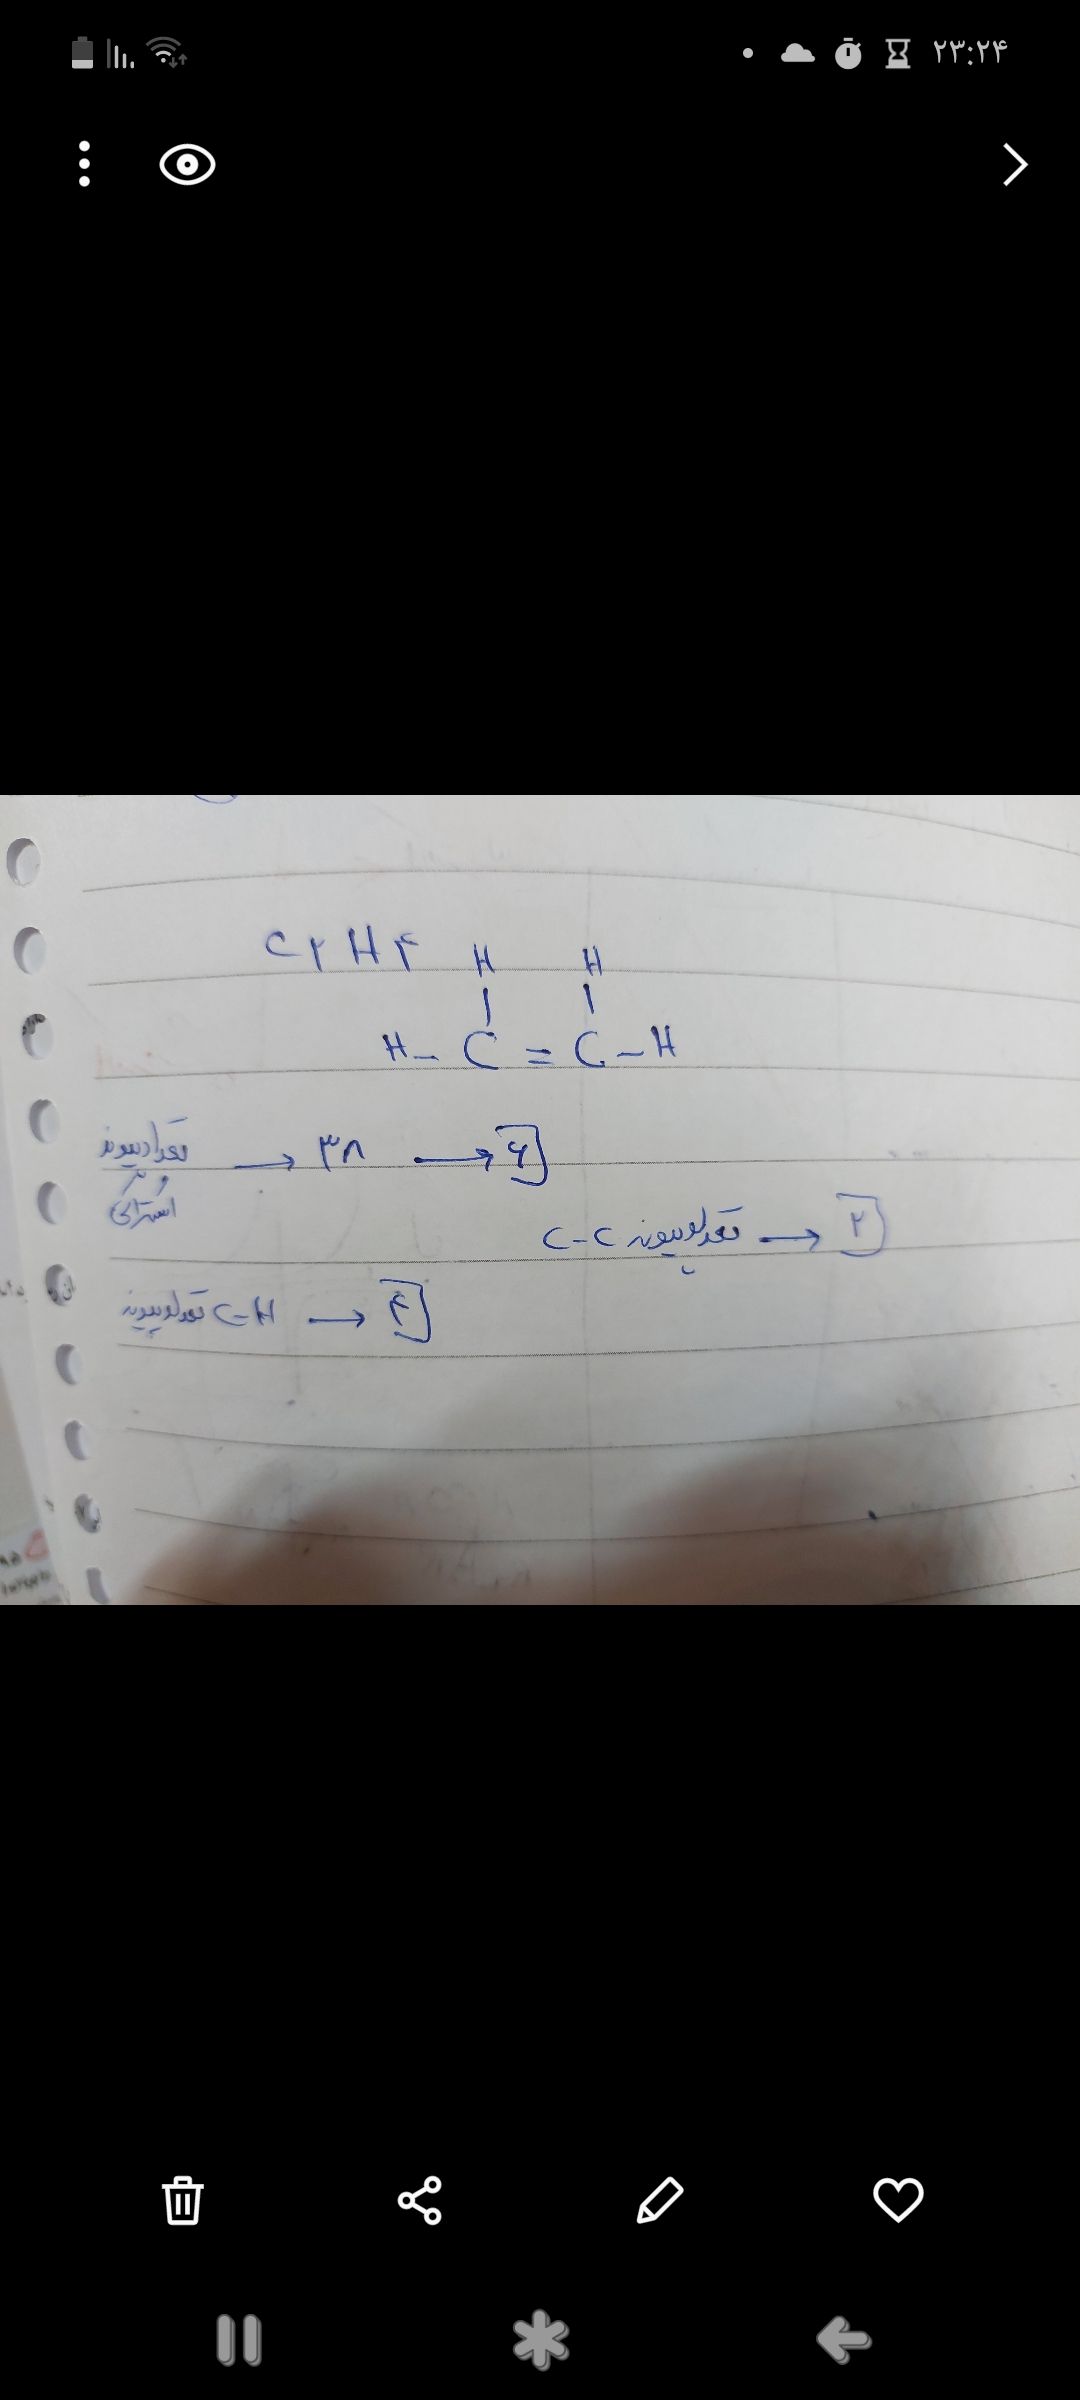 ۲۳:۲۴
C۲H۴
H H
H - C = C - H
تعداد پیوند اشتراکی → ۳n → ۶
تعداد پیوند C-C → ۲
تعداد پیوند C-H → ۴